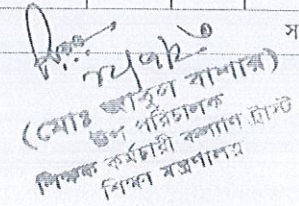 স
(মোঃ আবুল বাশার)
উপ পরিচালক
শিক্ষক কর্মচারী কল্যাণ ট্রাস্ট
শিক্ষা মন্ত্রণালয়